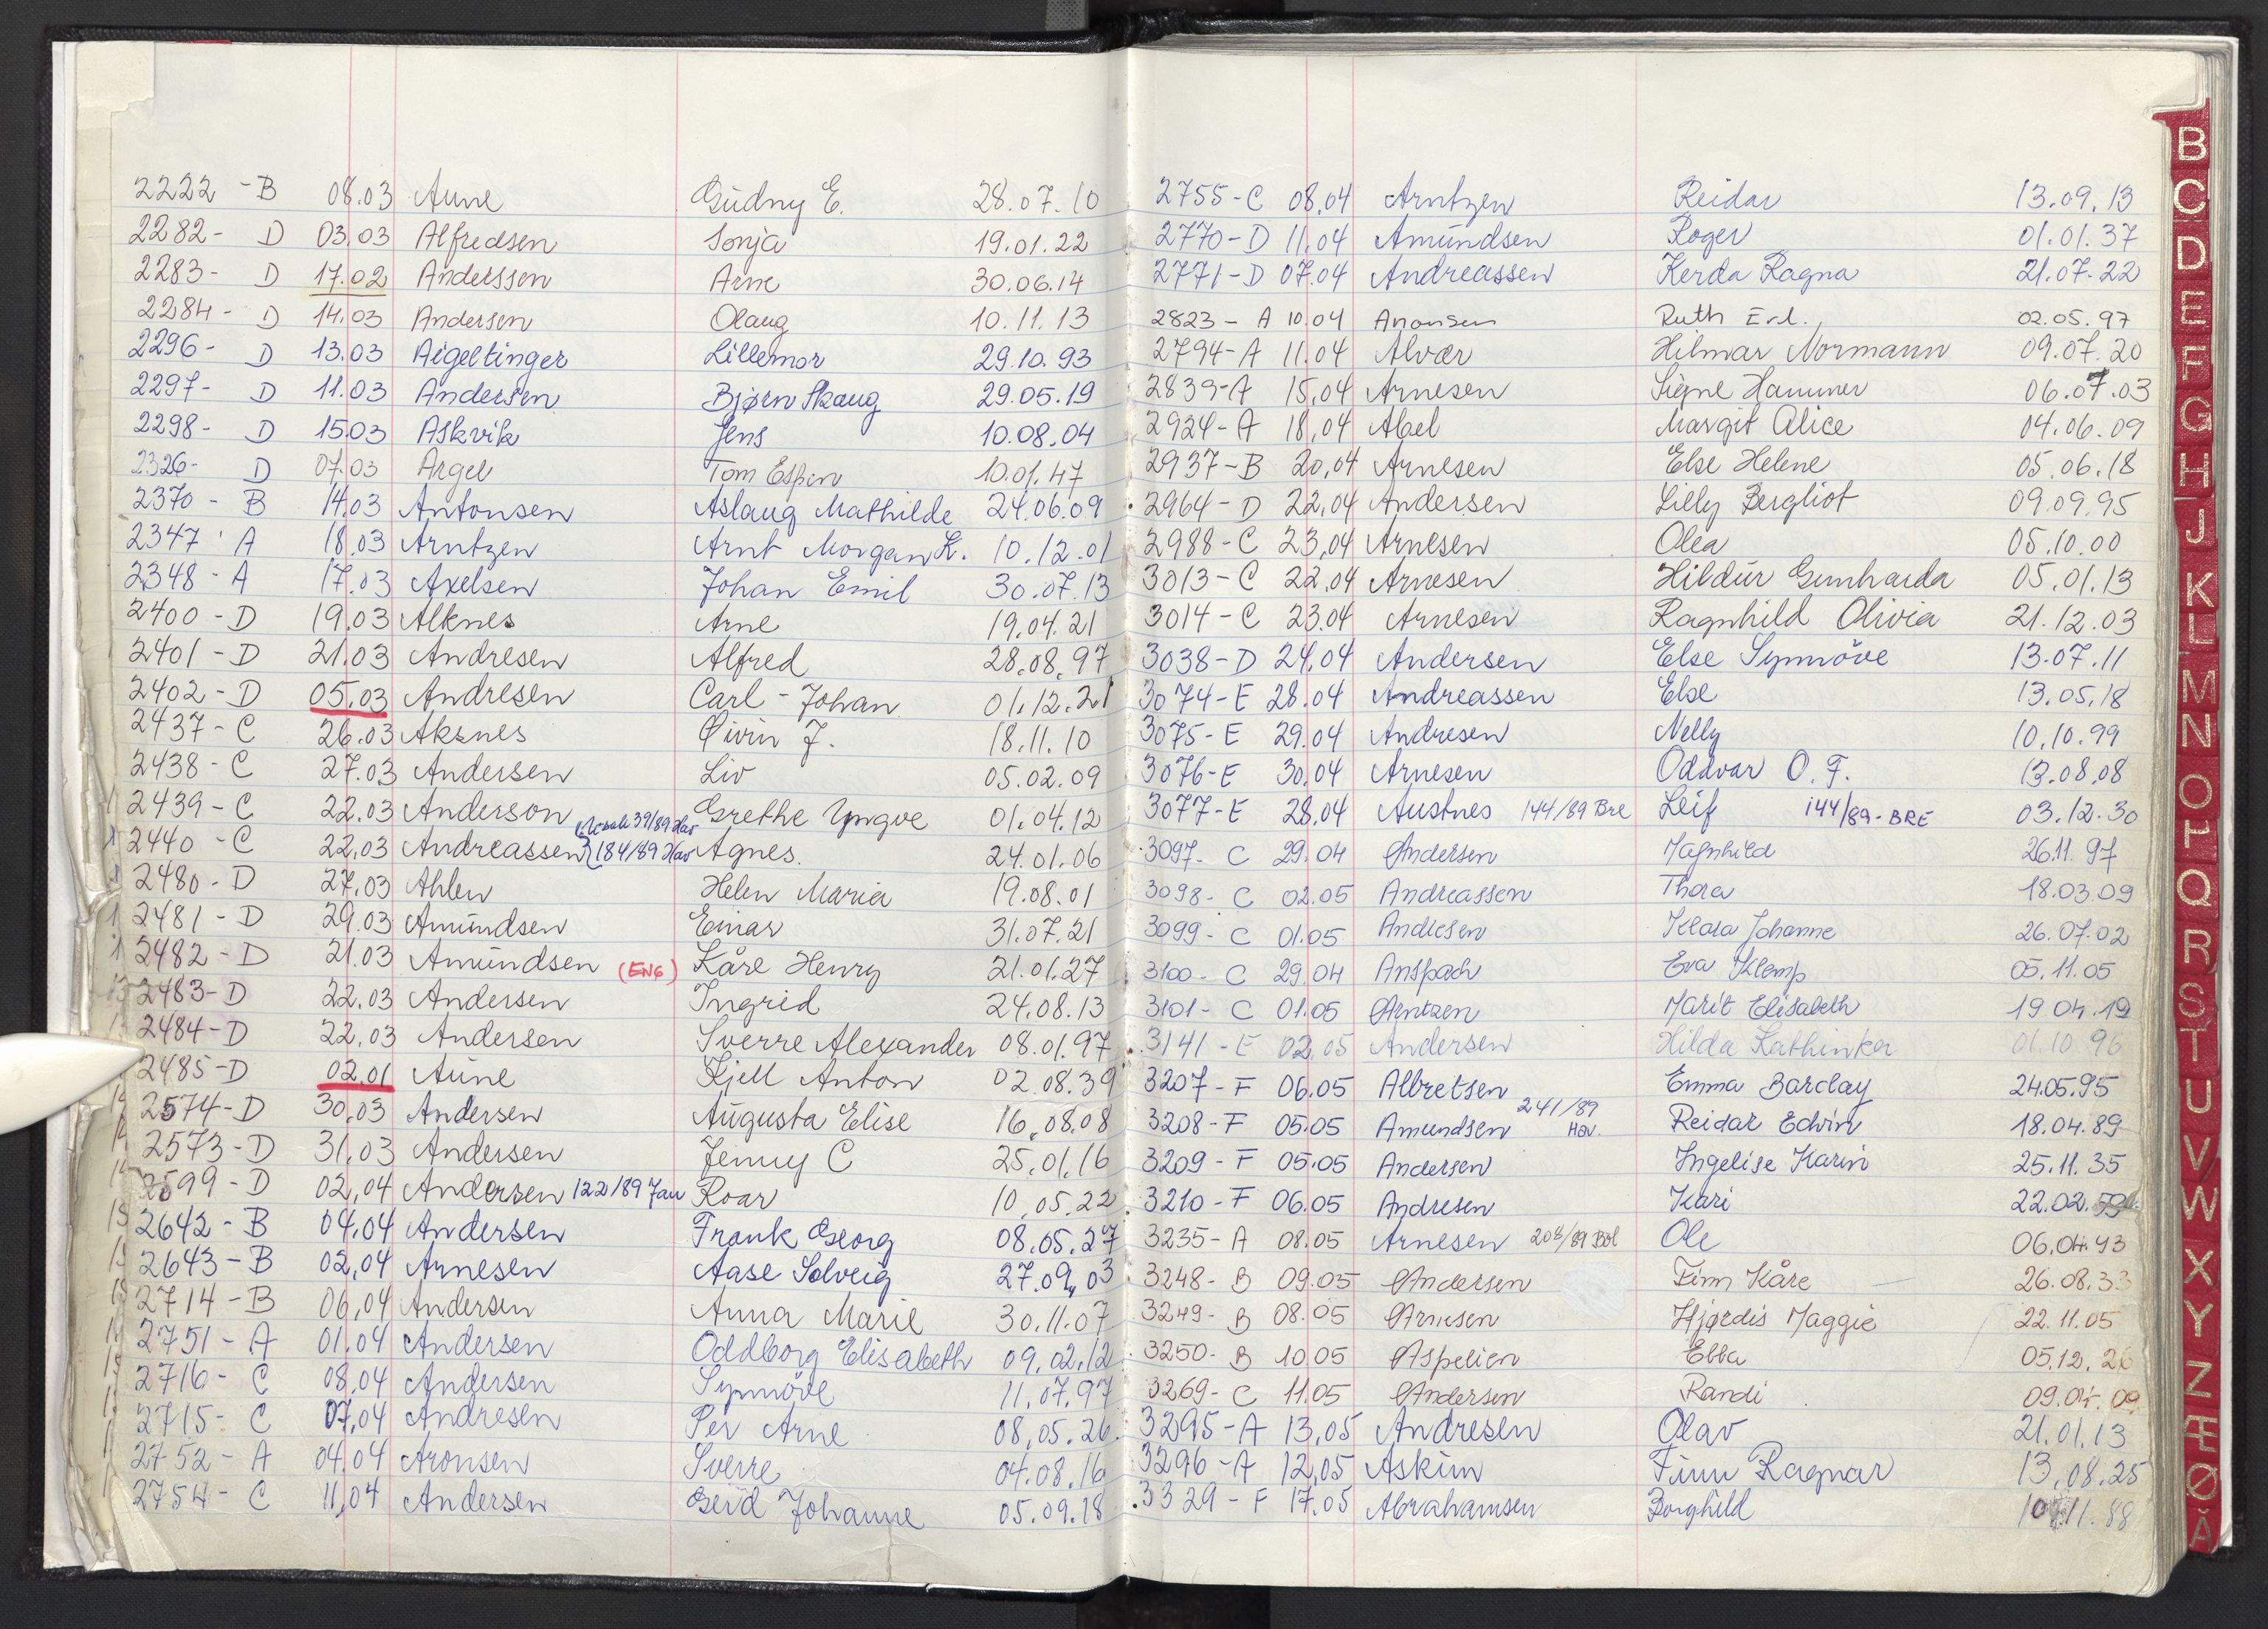 2222 - B 08.03 Aune Gudny E. 28.07.10
2282- D 03.03 Alfredsen Sonja 19.01.22
2283- D 17.02 Anderssen Arne 30.06.14
2284- D 14.03 Andersen Olaug 10.11.13
2296- D 13.03 Aigeltinger Lillemor 29.10.93
2297- D 11.03 Andersen Bjørn Skaug 29.05.19
2298- D 15.03 Askvik Jens 10.08.04
2326- D 07.03 Angel Tom Espen 10.01.47
2370 - B 14.03 Antonsen Aslaug Mathilde 24.06.09
2347 - A 18.03 Arntzen Arnt Morgan K. 10.12.01
2348 - A 17.03 Axelsen Johan Emil 30.07.13
2400 - D 19.03 Alknes Arne 19.04.21
2401 - D 21.03 Andresen Alfred 28.08.97
2402 - D 05.03 Andresen Carl - Johan 01.12.21
2437 - C 26.03 Aksnes Øivin J. 18.11.10
2438 - C 27.03 Andersen Liv 05.02.09
2439 - C 22.03 Anderson Grethe Yngve 01.04.12
39/89 Hav
2440 - C 22.03 Andreassen (184/89 Hav Agnes. 24.01.06
2480 - D 27.03 Ahlen Helen Maria 19.08.01
2481 - D 29.03 Amundsen Einar 31.07.21
2482 - D 21.03 Amundsen (ENG) Kåre Henry 21.01.27
2483 - D 22.03 Andersen Ingrid 24.08.13
2484 - D 22.03 Andersen Sverre Alexander 08.01.97
2485 - D 02.01 Aune Kjell Anton 02.08.39
2574 - D 30.03 Andersen Augusta Elise 16.08.08
2573 - D 31.03 Andersen Jenny C 25.01.16
2599 - D 02.04 Andersen 122/89 Jau Roar 10.05.22
2642 - B 04.04 Andersen Frank Georg 08.05.27
2643 - B 02.04 Arnesen Aase Solveig 27.09.03
2714 - B 06.04 Andersen Anna Marie 30.11.07
2751 - A 01.04 Andersen Oddborg Elisabeth 09.02.12
2716 - C 08.04 Andersen Synnöve 11.07.97
2715 - C 07.04 Andresen Per Arne 08.05.26
2752 - A 04.04 Aronsen Sverre 04.08.16
2754 - C 11.04 Andersen Gerd Johanne 05.09.18
2755 - C 08.04 Arntzen Reidar 13.09.13
2770 - D 11.04 Amundsen Roger 01.01.37
2771 - D 07.04 Andreassen Kerda Ragna 21.07.22
2823 - A 10.04 Aronsen Ruth 02.05.97
2794 - A 11.04 Alvær Hilmar Normann 09.07.20
2839 - A 15.04 Arnesen Signe Hammer 06.07.03
2924 - A 18.04 Abel Margit Alice 04.06.09
2937 - B 20.04 Arnesen Else Helene 05.06.18
2964 - D 22.04 Andersen Lilly Bergliot 09.09.95
2988 - C 23.04 Arnesen Olea 05.10.00
3013 - C 22.04 Arnesen Hildur Gunharda 05.01.13
3014 - C 23.04 Arnesen Ragnhild Olivia 21.12.03
3038 - D 24.04 Andersen Else Synnöve 13.07.11
3074 - E 28.04 Andreassen Else 13.05.18
3075 - E 29.04 Andresen Nelly 10.10.99
3076 - E 30.04 Arnesen Oddvar O. F. 13.08.08
3077 - E 28.04 Austnes 144/89 Bre Leif 144/89 - BRE 03.12.30
3097 - C 29.04 Andersen Magnhild 26.11.97
3098 - C 02.05 Andreassen Thora 18.03.09
3099 - C 01.05 Andresen Klara Johanne 26.07.02
3100 - C 29.04 Anspach Eva Klemp 05.11.05
3101 - C 01.05 Arntzen Marit Elisabeth 19.04.19
3141 - E 02.05 Andersen Hilda Kathinka 01.10.96
3207 - F 06.05 Albretsen Emma Barclay 24.05.95
3208 - F 05.05 Amundsen 241/89 Hav. Reidar Edvin 18.04.89
3209 - F 05.05 Andersen Ingelise Karin 25.11.35
3210 - F 06.05 Andresen Kari 22.02.
3235 - A 08.05 Arnesen 208/89 Bol Ole 06.04.93
3248 - B 09.05 Andersen Finn Kåre 26.08.33
3249 - B 08.05 Arnesen Hjørdis Maggie 22.11.05
3250 - B 10.05 Aspelien Ebba 05.12.26
3269 - C 11.05 Andersen Randi 09.04.09
3295 - A 13.05 Andresen Olav 21.01.13
3296 - A 12.05 Askim Finn Ragnar 13.08.25
3329 - F 17.05 Abrahamsen Borghild 11.88
B
C
D
E
F
G
H
J
K
L
M
N
O
P
Q
R
S
T
U
V
W
X
Y
Z
Æ
Ø
Å